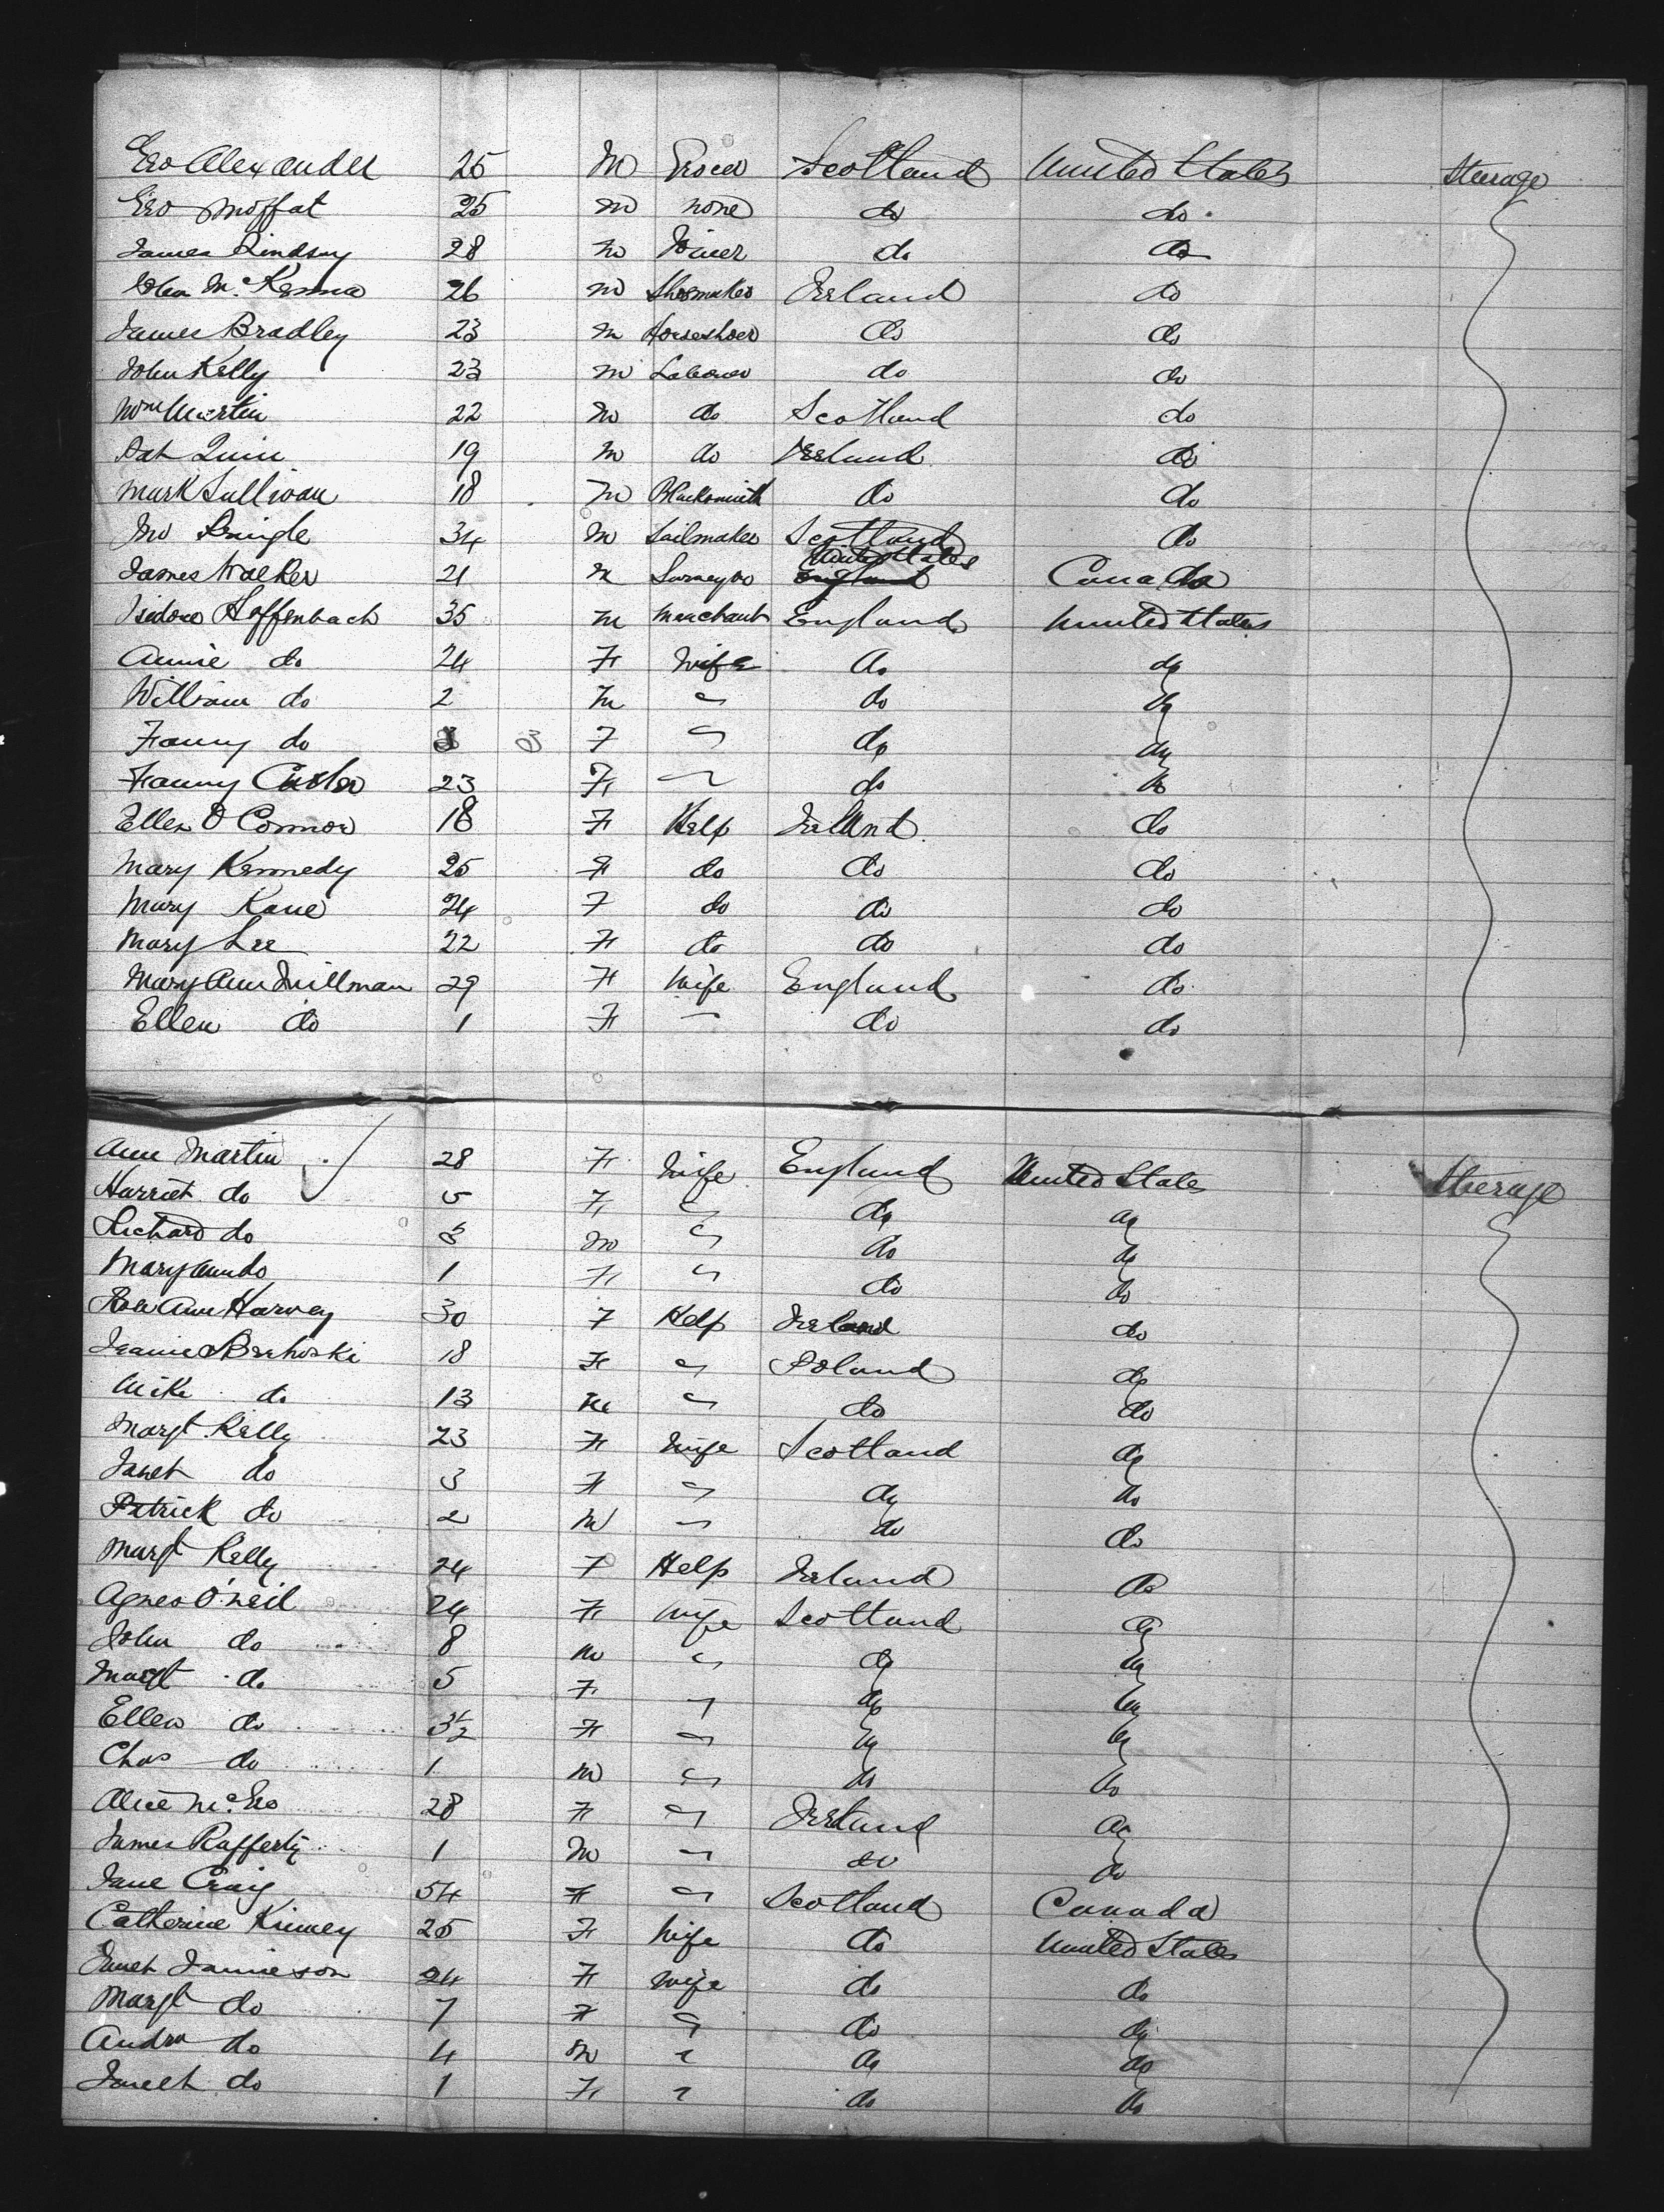 Geo Alexander 25 M Grocer Scotland United States Steerage
Geo Moffat 25 M none do do
James Lindsay 28 M Joiner do do
John McKenna 26 M Shoemaker Ireland do
James Bradley 23 M Horseshoer do do
John Kelly 23 M Laborer do do
Wm Martin 22 M do Scotland do
Pat Quin 19 M do Ireland do
Mark Sullivan 18 M Blacksmith do do
Jno Pringle 34 M Sailmaker Scotland do
James Walker 21 M Surveyor England United States Canada
Isidore Hoffenbach 35 M Merchant England United States
Annie do 24 F Wife do do
William do 2 M " do do
Fanny do 3 F " do do
Fanny 23 F " do do
Ellen O Connor 18 F Help Ireland do
Mary Kennedy 25 F do do do
Mary Kane 24 F do do do
Mary Lee 22 F do do do
Mary Ann Millman 29 F Wife England do
Ellen do 1 F " do do
Ann Martin 28 F Wife England United States Steerage
Harriet do 5 F " do do
Richard do 3 M " do do
Mary Ann do 1 F " do do
Ann Harvey 30 F Help Ireland do
18 F " Poland do
Mike do 13 M " do do
Margt Kelly 23 F Wife Scotland do
Janet do 3 F " do do
Patrick do 2 M " do do
Margt Kelly 24 F Help Ireland do
Agnes O'neil 24 F Wife Scotland do
John do 8 M " do do
Margt do 5 F " do do
Ellen do 3½ F " do do
Chas do 1 M " do do
Alice 28 F " Ireland do
James Rafferty 1 M " do do
Jane Craig 54 F " Scotland Canada
Catherine Kinney 25 F Wife do United States
Janet Jamieson 24 F Wife do do
Margt do 7 F " do do
Andrw do 4 M " do do
Janet do 1 F " do do